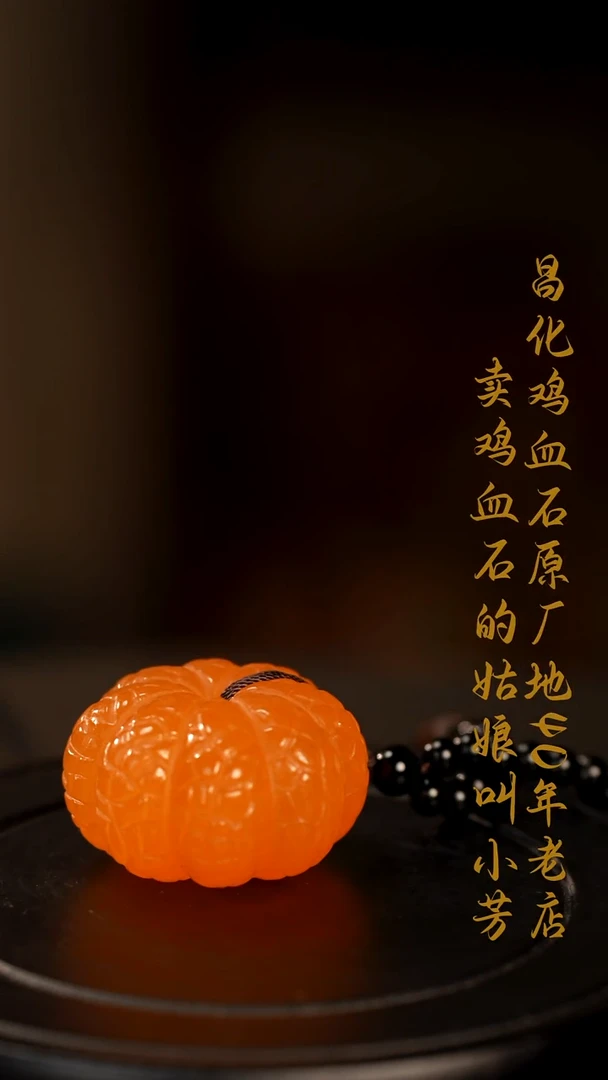 昌化鸡血石原厂地40年老店
卖鸡血石的姑娘叫小芳